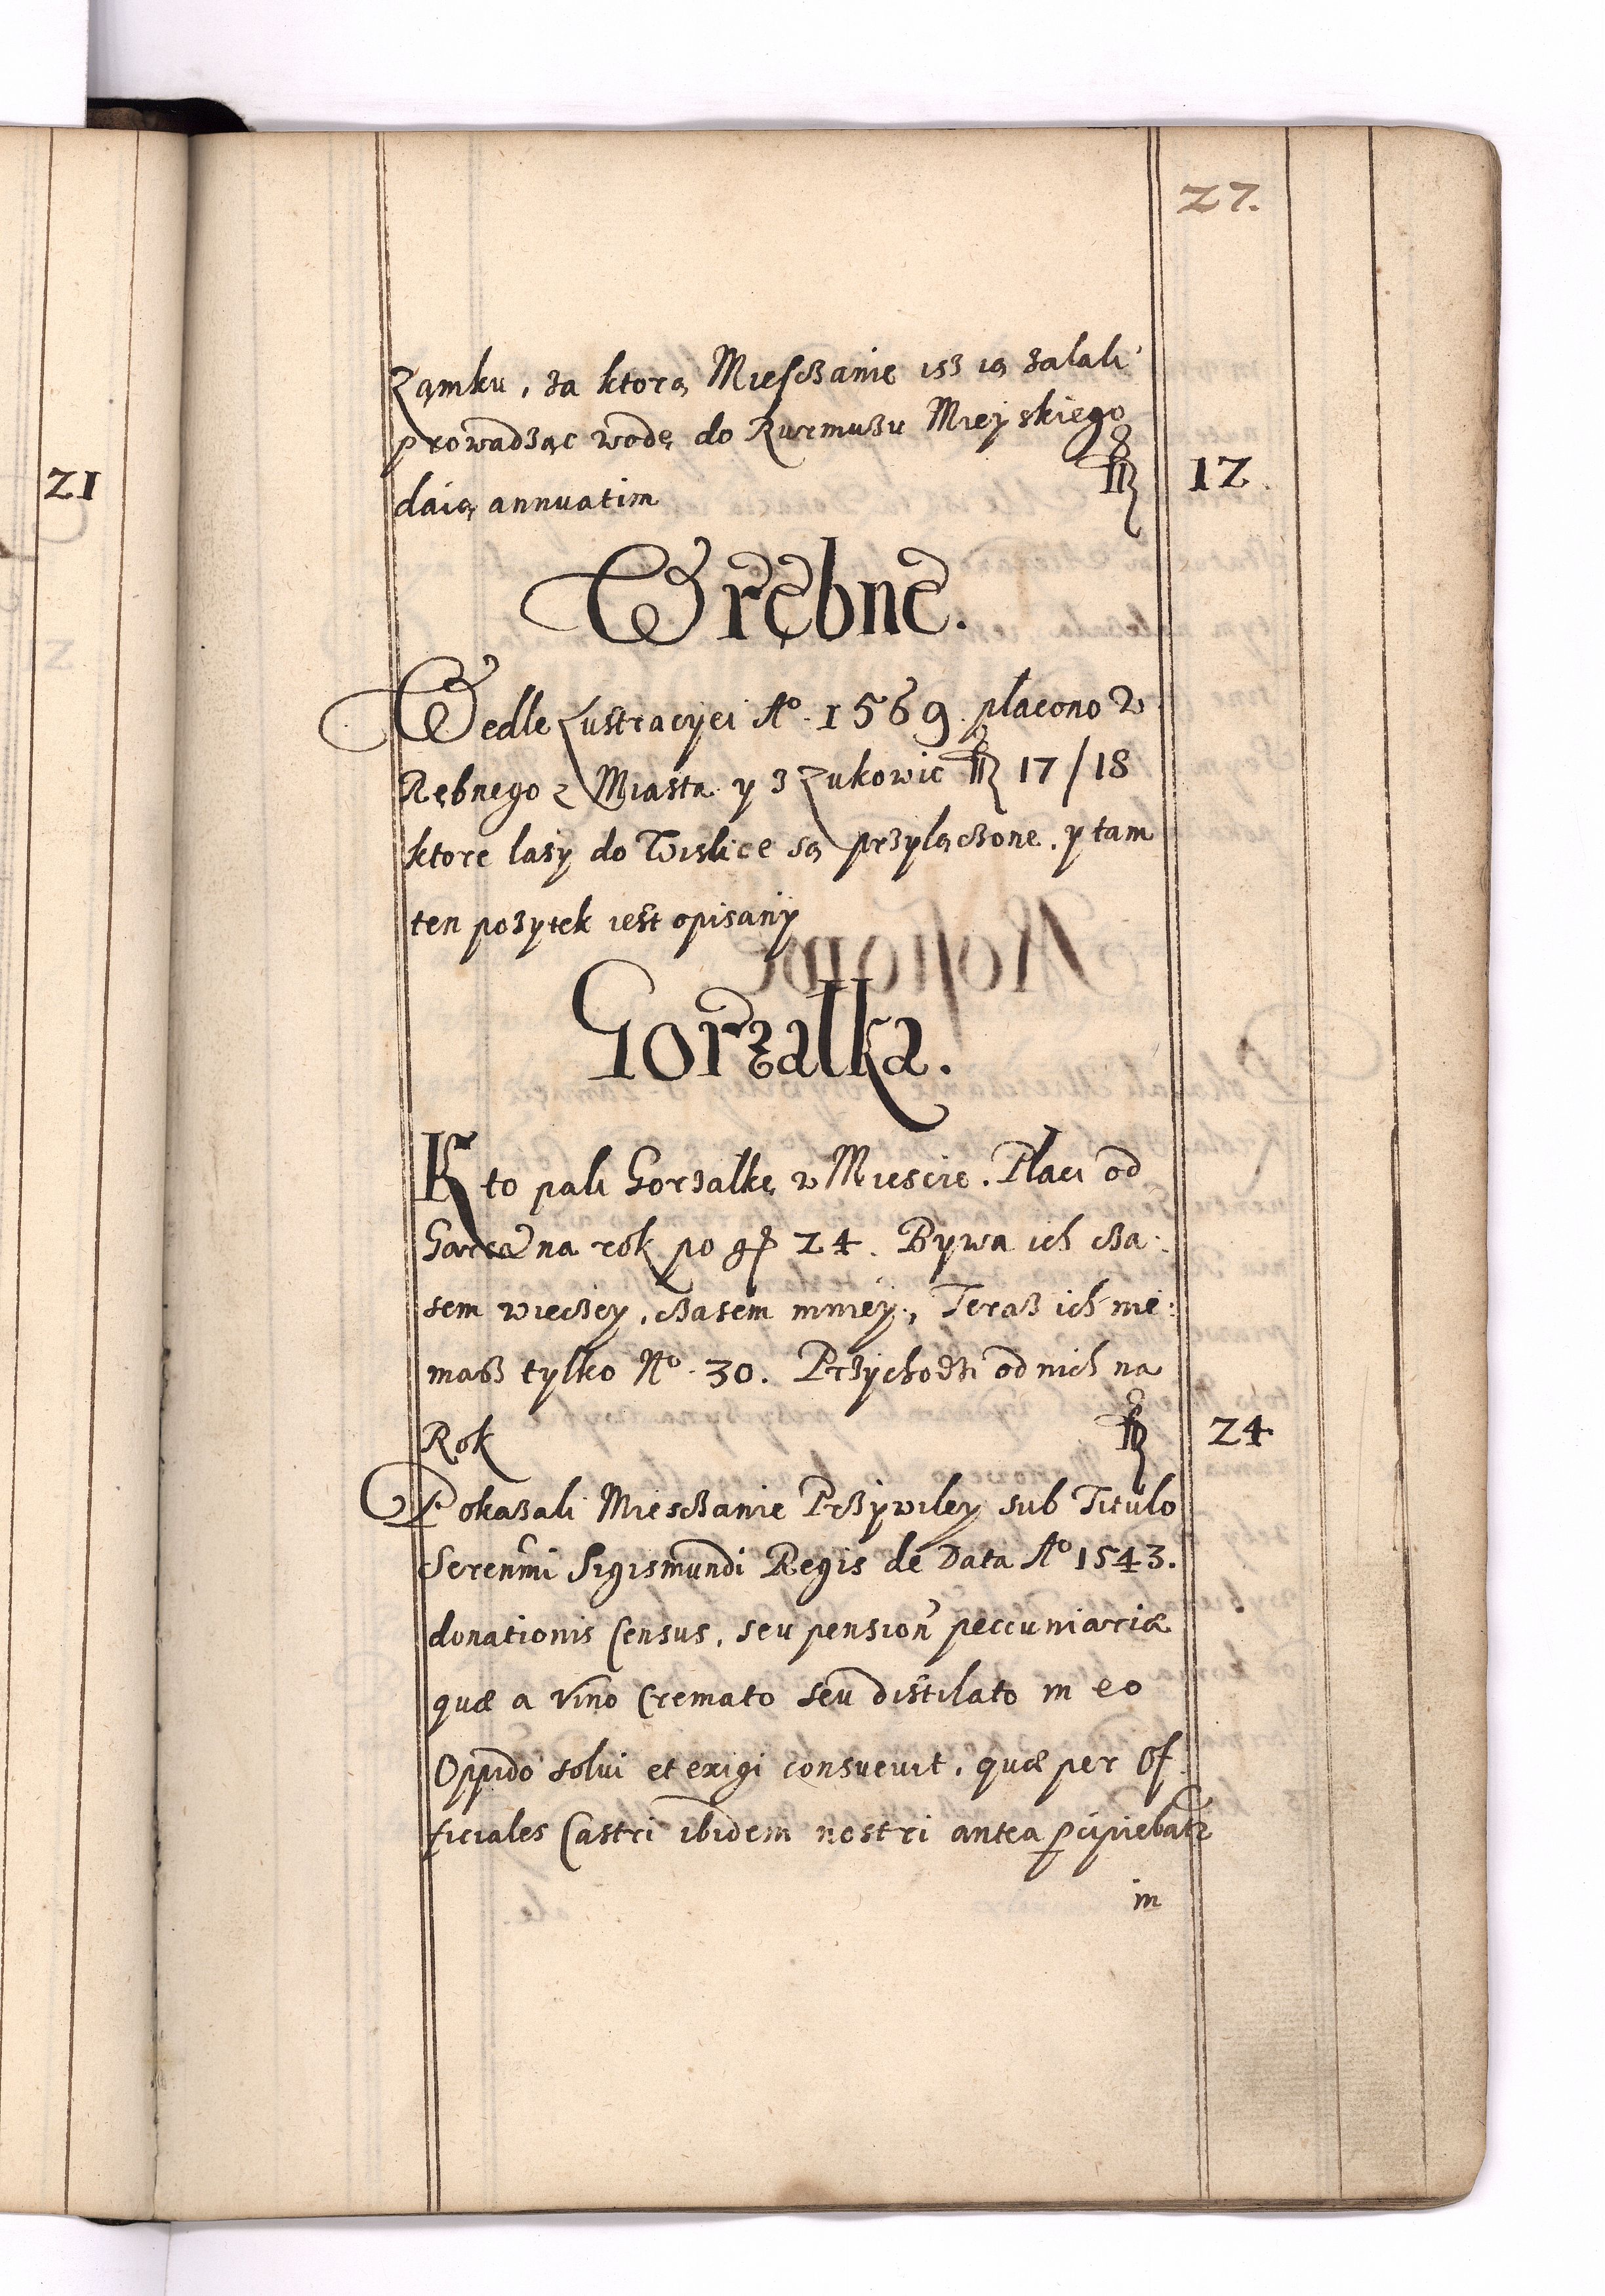 27.
Zamku, za ktorą Miesczanie isz ią zalali
prowadząc wodę do Rurmuszu Mieyskiego
daią annuatim fl 12.
Wrębne.
Wedle Lustracyei Aº. 1569. płacono W
Rębnego z Miasta y z Zukowic fl 17/18
ktore lasy do Wislice są przyłączone. y tam
ten pozytek iest opisany
Gorzałka.
Kto pali Gorzałkę w Miescie. Płaci od
Garca na rok po gr 24. Bywa ich cza:
sem wieczey, czasem mniey, Teraz ich nie:
masz tylko Nº. 30. Przychodzi od nich na
Rok fl 24
Pokazali Miesczanie Przywiley sub Titulo
Serenmi Sigismundi Regis de Data Aº 1543.
donationis Census, seu pension peccuniariæ
quæ a vino Cremato seu distilato in eo
Oppido solui et exigi consueuit, quæ per Of
ficiales Castri ibidem nostri antea pcipiebatr
in
21